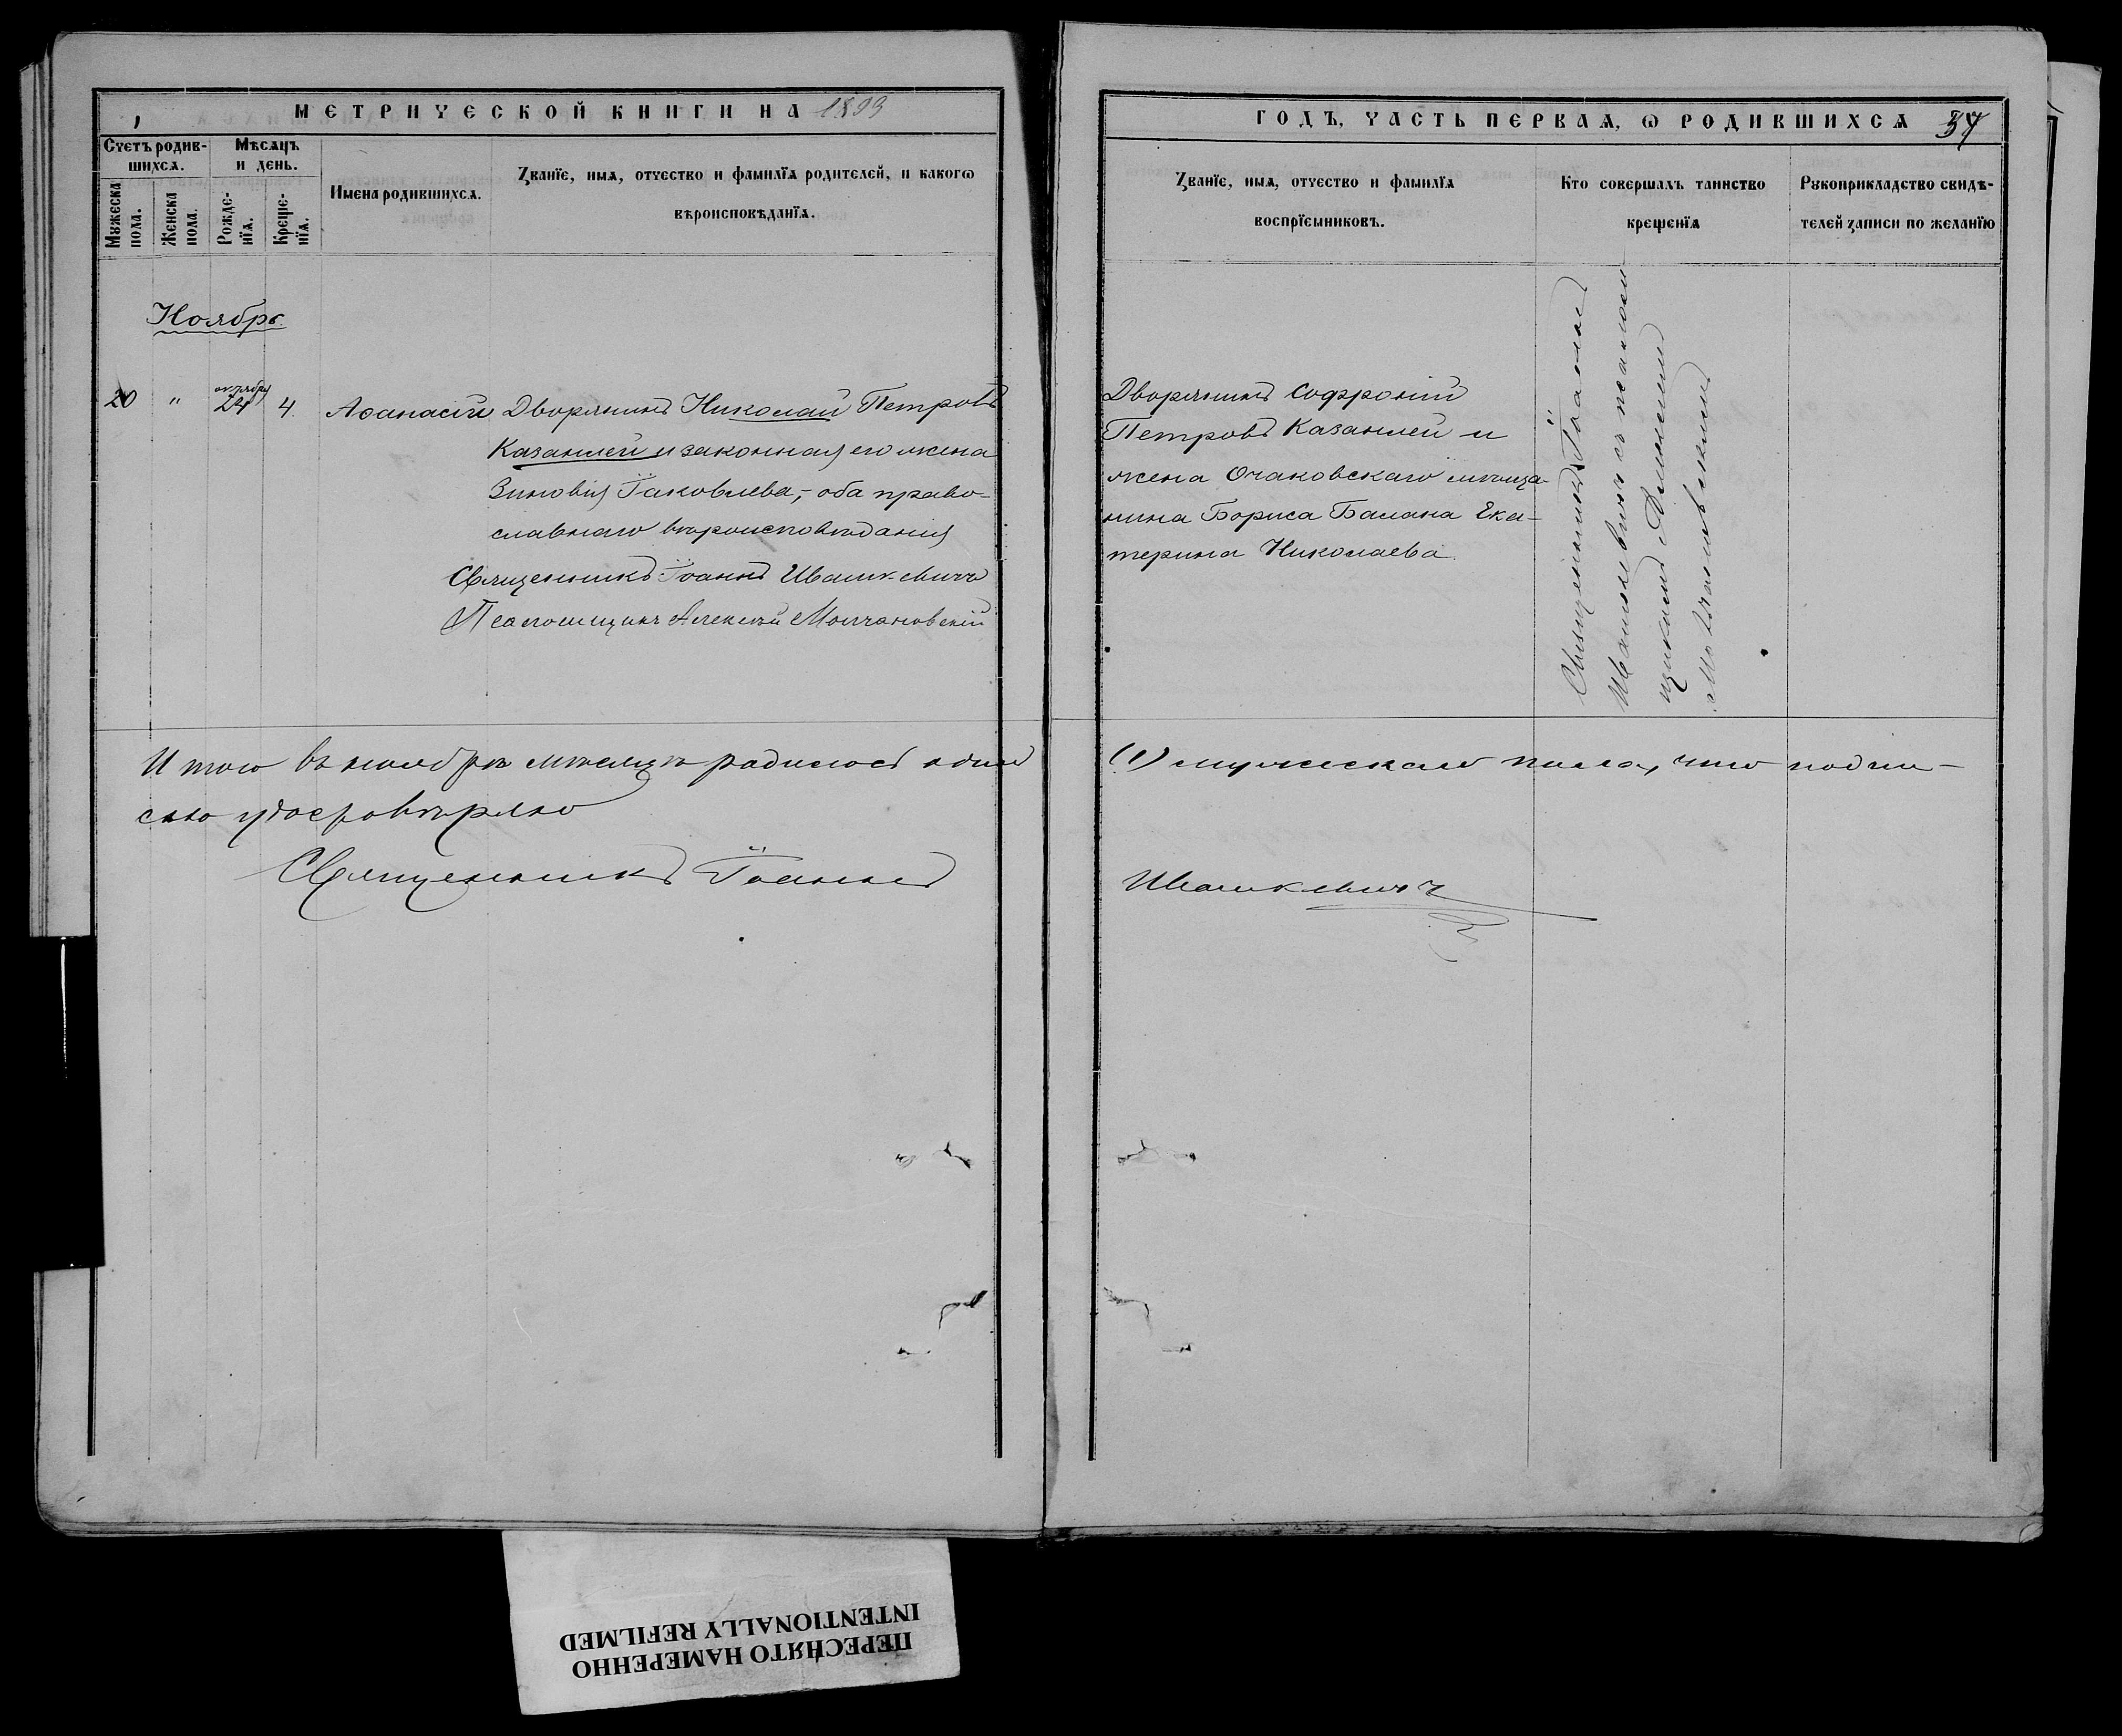 МЕТРИЧЕСКОЙ КНИГИ НА 1899
Счетъ родив-
шихсѧ.
Мѣсѧцъ
и день.
Мꙋжеска
пола.
Женска
пола.
Рожде-
нїѧ.
Креще-
нїѧ.
Имена родившихсѧ.
Званїе, имѧ, отчество и фамилїѧ родителей, и какогѡ
вѣроисповѣданїѧ.
Ноябрь.
20 " октября 24 4. Аѳанасій
Дворянинъ Николай Петровъ
Казанлей и законная его жена
Зиновія Іаковлева,- оба право-
славнаго вѣроисповѣданія
Священникъ Іоаннъ Ивашкевичъ
Псаломщикъ Алексѣй Молчановскій
Итого въ ноябрѣ мѣсяцѣ родилось одинъ
сью удосровѣряю
Священникъ Іоаннъ
ГОДЪ, ЧАСТЬ ПЕРВАѦ, Ѡ РОДИВШИХСѦ 57
Званїе, имѧ, отчество и фамилїѧ
воспрїемниковъ.
Кто совершалъ таинство
крещенїѧ
Рꙋкоприкладство свидѣ-
телей записи по желанїю
Дворянинъ Софроній
Петровъ Казанлей и
жена Очаковскаго мѣща-
нина Бориса Балана Ека-
терина Николаева.
Священникъ Іоаннъ
Ивашкевичъ съ псалом-
щикомъ
Молчановскимъ
(1) мужескаго пола, что подпи-
Ивашкевичъ
ПЕРЕСНЯТО НАМЕРЕННО
INTENTIONALLY REFILMED